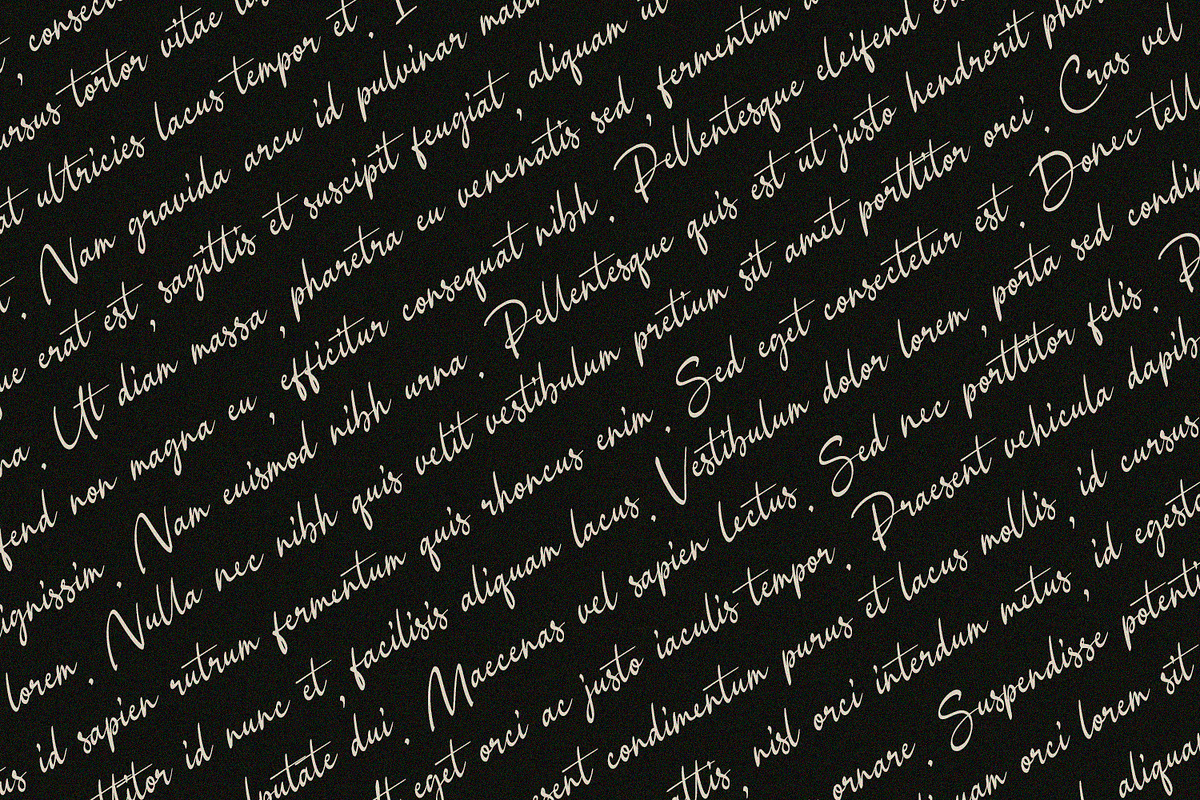 , consecte
ursus tortor vitae
at ultricies lacus tempor et .
. Nam gravida arcu id pulvinar maxi
ue erat est , sagittis et suscipit feugiat , aliquam ut
na . Ut diam massa , pharetra eu venenatis sed , fermentum
fend non magna eu , efficitur consequat nibh . Pellentesque eleifend
ignissim . Nam euismod nibh urna . Pellentesque quis est ut justo hendrerit phar
lorem . Nulla nec nibh quis velit vestibulum pretium sit amet porttitor orci . Cras vel
us id sapien rutrum fermentum quis rhoncus enim . Sed eget consectetur est . Donec tell
ttitor id nunc et , facilisis aliquam lacus . Vestibulum dolor lorem , porta sed condi
lputate dui . Maecenas vel sapien lectus . Sed nec porttitor felis . P
eget orci ac justo iaculis tempor . Praesent vehicula dapib
esent condimentum purus et lacus mollis , id cursus
attis , nisl orci interdum metus , id egest
ornare . Suspendisse potenti
uam orci lorem sit
aliqua